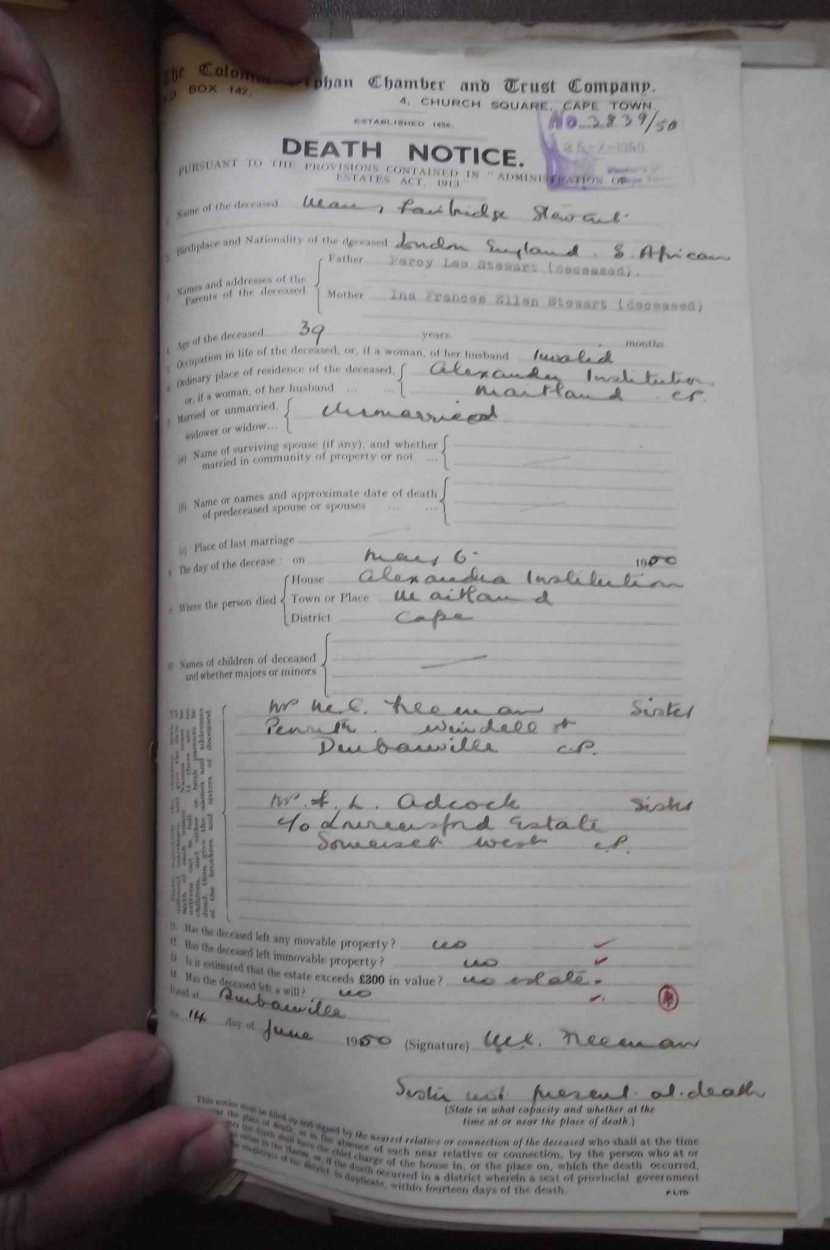 The Colonial Orphan Chamber and Trust Company.
P.O. BOX 142.
4, CHURCH SQUARE, CAPE TOWN.
ESTABLISHED 1856.
No. 2839/50
DEATH NOTICE.
PURSUANT TO THE PROVISIONS CONTAINED IN "ADMINISTRATION OF
ESTATES ACT, 1913."
1 Name of the deceased Fairbridge Stewart
2 Birthplace and Nationality of the deceased London England. S. African
3 Names and addresses of the Parents of the deceased
Father Percy Lea Stewart (deceased).
Mother Ina Frances Ellen Stewart (deceased)
4 Age of the deceased 39 years, months
5 Occupation in life of the deceased, or, if a woman, of her husband Invalid
6 Ordinary place of residence of the deceased, Alexandra Institution,
or, if a woman, of her husband ... ... Maitland CP.
7 Married or unmarried, Unmarried
widower or widow...
(a) Name of surviving spouse (if any), and whether
married in community of property or not ...
(b) Name or names and approximate date of death
of predeceased spouse or spouses ... ...
(c) Place of last marriage
8 The day of the decease: on May 6 1950
9 Where the person died
House Alexandra Institution
Town or Place Maitland
District Cape
10 Names of children of deceased
and whether majors or minors
Neeman Sister
Penrith. St
Durbanville CP.
Adcock Sister
c/o Lourensford Estate
Somerset West CP.
children, and either or both parents be
dead, then give the names and addresses
of the brothers and sisters of deceased.
11. Has the deceased left any movable property? no
12. Has the deceased left immovable property? no
13. Is it estimated that the estate exceeds £300 in value? no estate.
14. Has the deceased left a will? no
Dated at Durbanville
the 14 day of June 1950 (Signature) Neeman
Sister not present at death
(State in what capacity and whether at the
time at or near the place of death.)
This notice must be filled up and signed by the nearest relative or connection of the deceased who shall at the time
near the place of death, or in the absence of such near relative or connection, by the person who at or
after the death shall have the chief charge of the house in, or the place on, which the death occurred,
Master, or, if the death occurred in a district wherein a seat of provincial government
magistrate of the district, in duplicate, within fourteen days of the death.